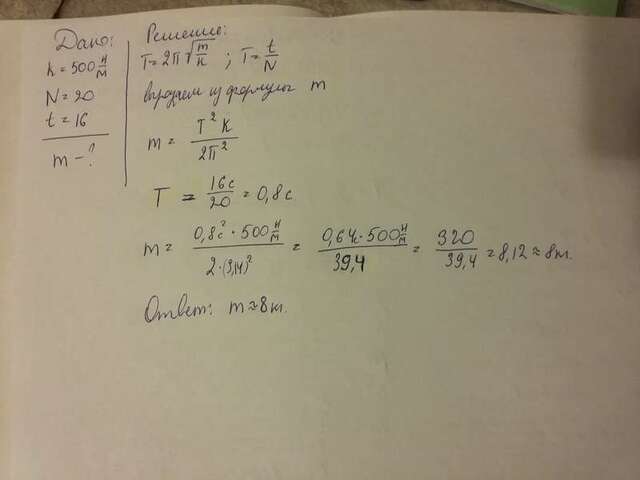 Дано:
k = 500 Н/м
N = 20
t = 16
m - ?
Решение:
T = 2π√(m/k) ; T = t/N
выражаем из формулы m
m = T² k / 2π²
T = 16с / 20 = 0,8с
m = 0,8с² · 500 Н/м / 2·(3,14)² = 0,64с · 500 Н/м / 39,4 = 320 / 39,4 = 8,12 ≈ 8кг.
Ответ: m ≈ 8кг.